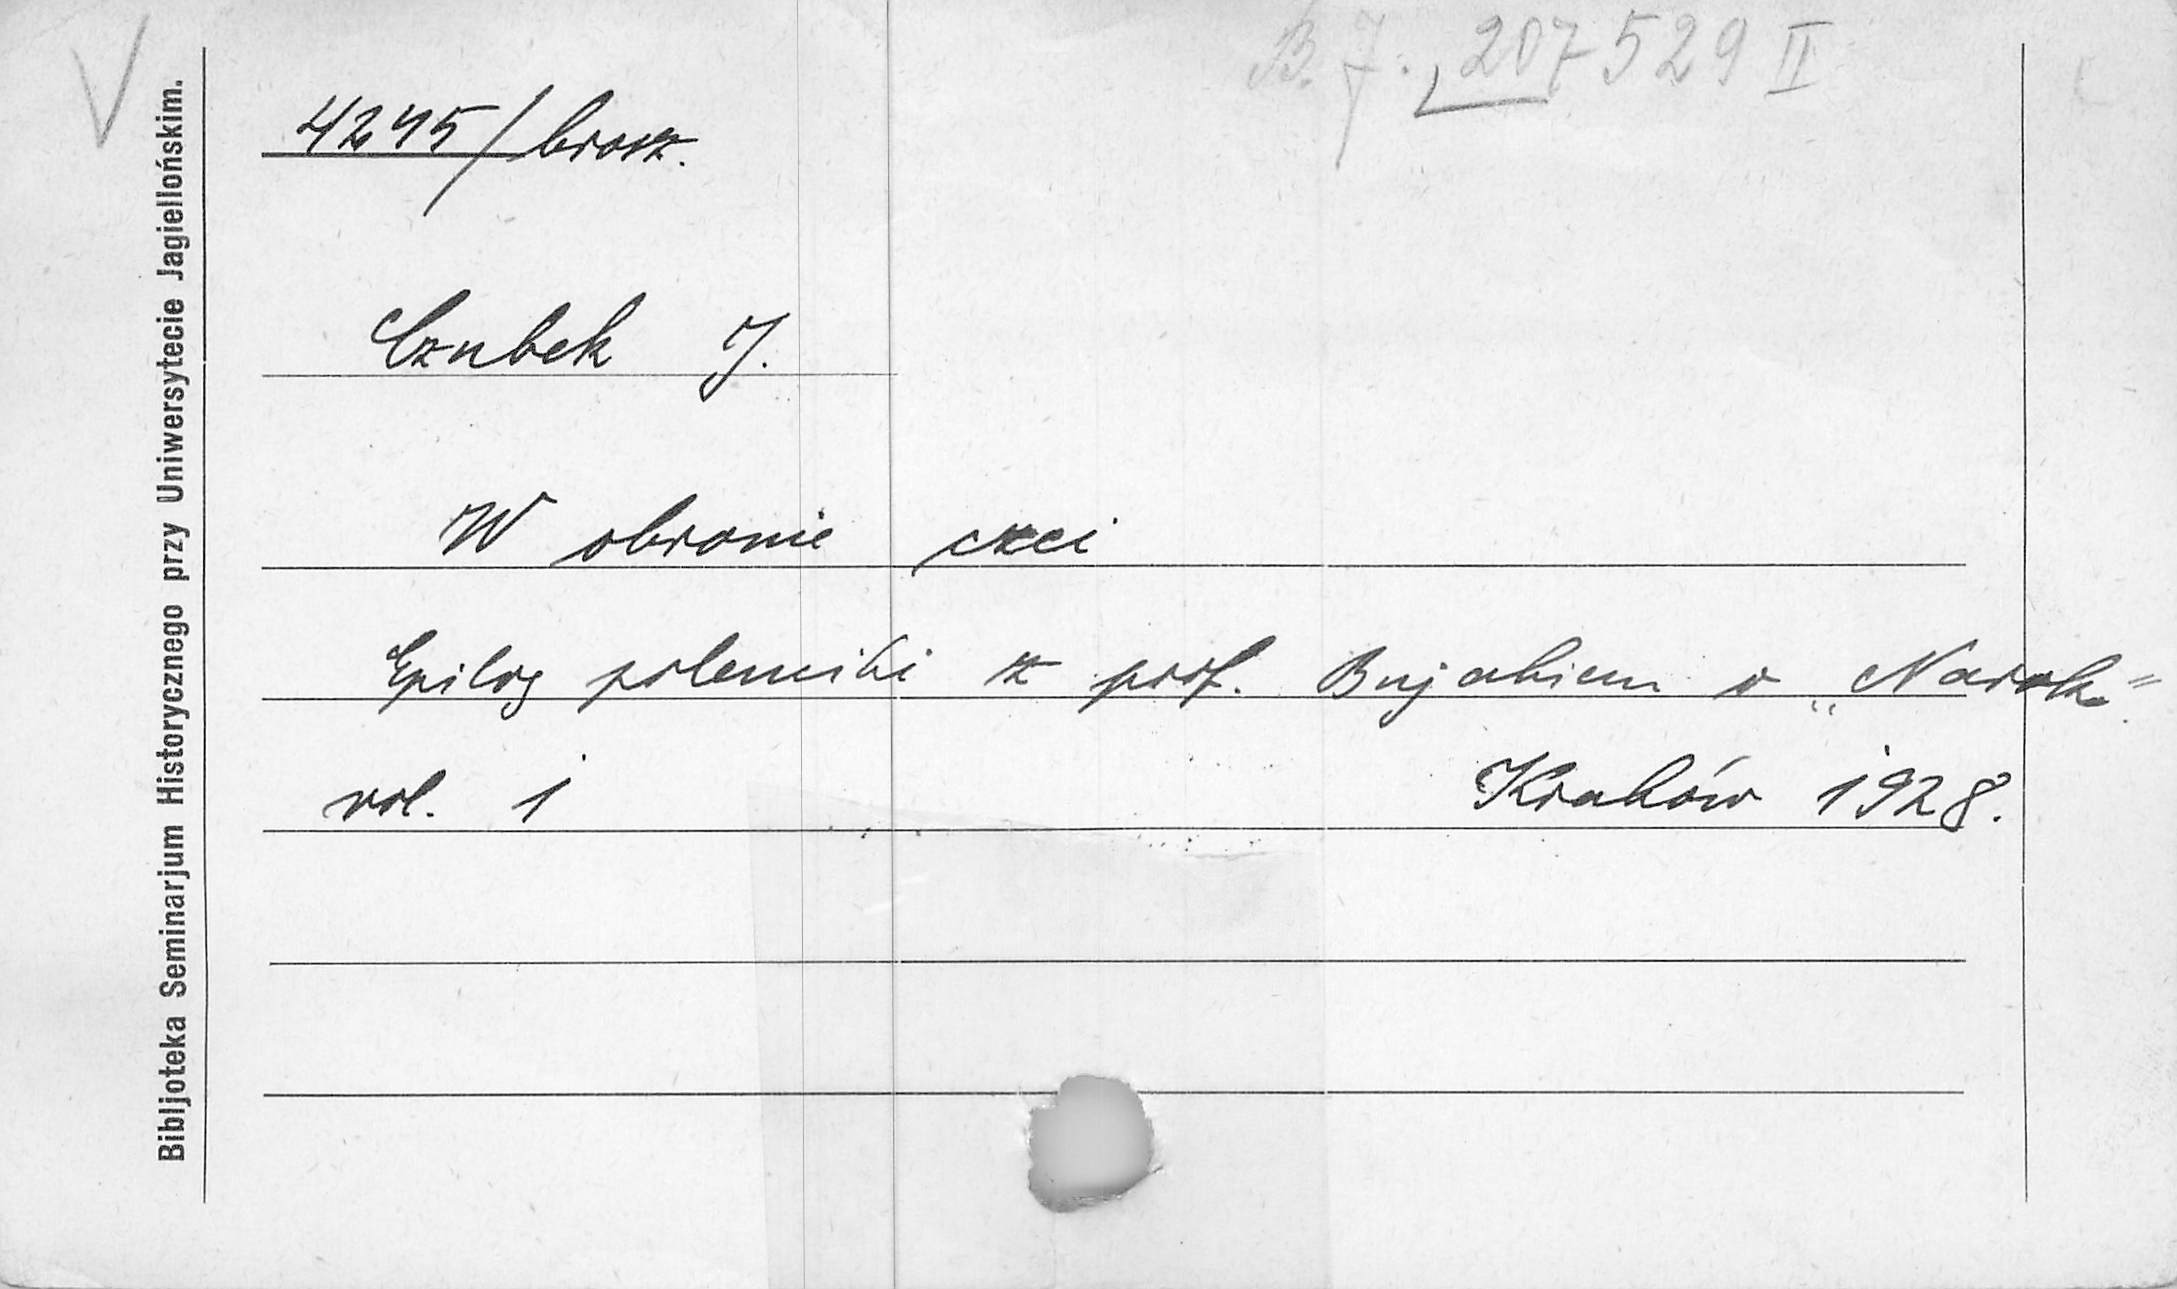 V
B. J. 207529 II
4245/brosz.
Czubek J.
W obronie czci
Epilog polemiki z prof. Bujakiem o „Narok"
vol. 1 Kraków 1928.
Bibljoteka Seminarjum Historycznego przy Uniwersytecie Jagiellońskim.